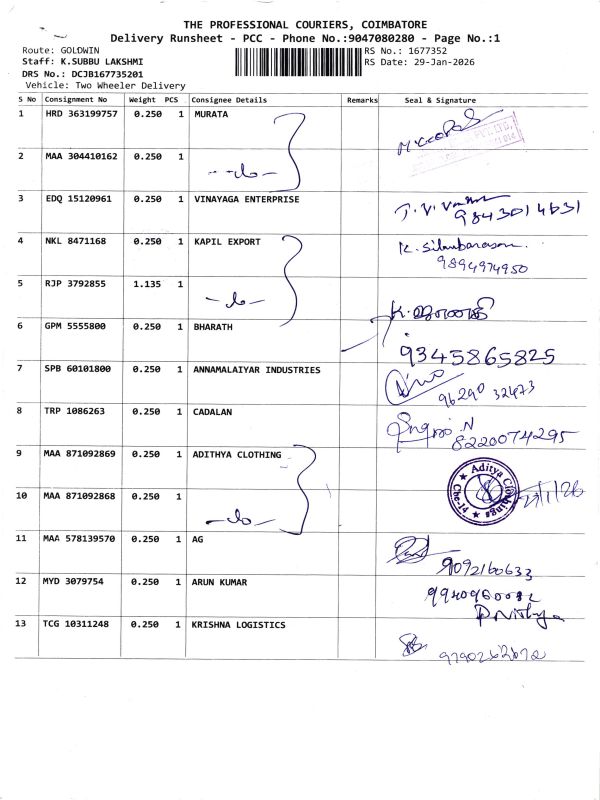 THE PROFESSIONAL COURIERS, COIMBATORE
Delivery Runsheet - PCC - Phone No.:9047080280 - Page No.:1
Route: GOLDWIN
Staff: K.SUBBU LAKSHMI
DRS No.: DCJB167735201
Vehicle: Two Wheeler Delivery
RS No.: 1677352
RS Date: 29-Jan-2026
S No Consignment No Weight PCS Consignee Details Remarks Seal & Signature
1 HRD 363199757 0.250 1 MURATA
2 MAA 304410162 0.250 1
3 EDQ 15120961 0.250 1 VINAYAGA ENTERPRISE
9843014631
4 NKL 8471168 0.250 1 KAPIL EXPORT K. Silambarasan.
9894974950
5 RJP 3792855 1.135 1
6 GPM 5555800 0.250 1 BHARATH
9345865825
7 SPB 60101800 0.250 1 ANNAMALAIYAR INDUSTRIES
96290 32473
8 TRP 1086263 0.250 1 CADALAN
8220074295
9 MAA 871092869 0.250 1 ADITHYA CLOTHING
Aditya Clothings
Cbe-14
10 MAA 871092868 0.250 1
11 MAA 578139570 0.250 1 AG
9092160633
12 MYD 3079754 0.250 1 ARUN KUMAR
P.Nithya
13 TCG 10311248 0.250 1 KRISHNA LOGISTICS